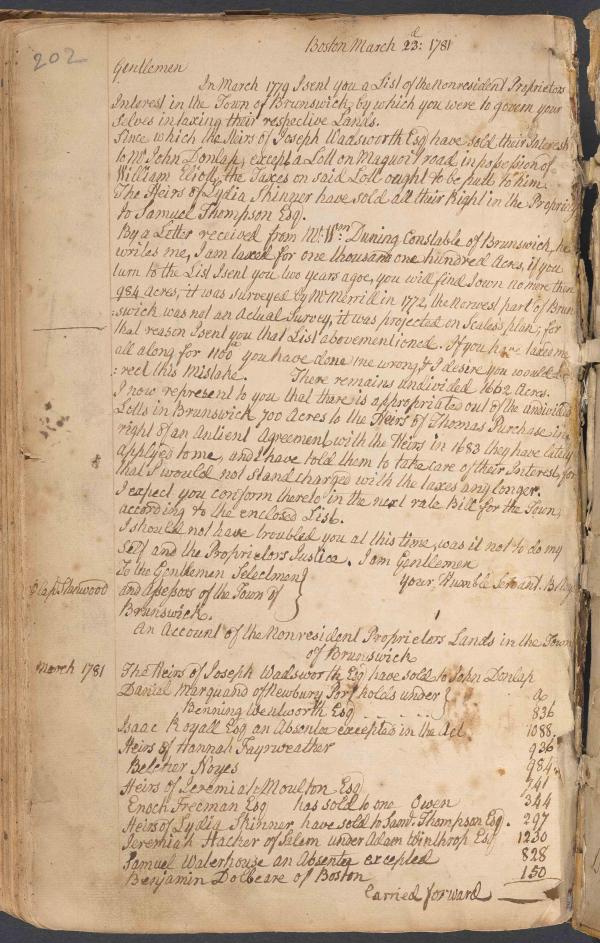 202
Boston March 23d: 1781
Gentlemen
In March 1779 I sent you a List of the Nonresident Proprietors
Interest in the Town of Brunswick, by which you were to govern your
selves in taxing their respective Lands.
Since which the Heirs of Joseph Wadsworth Esq have sold their Interest
to Mr John Donlap, except a Lott on Maquoit road in possession of
William Eliott, the Taxes on said Lott ought to be putt to him.
The Heirs of Lydia Skinner have sold all their Right in the
to Samuel Thompson Esq.
By a Letter received from Mr. Wm Duning Constable of Brunswick, he
writes me, I am taxed for one thousand one hundred Acres, if you
turn to the List I sent you two years agoe, you will find I own no more then
984 Acres, it was surveyed by Mr Merrill in 1772, the Norwest part of Brun
:swick was not an Actual Survey, it was projected on Scales's plan, for
that reason I sent you that List abovementioned. If you have taxed me
all along for 1100 a you have done me wrong, & I desire you would
:rect this mistake. There remains undivided 1662 Acres.
I now represent to you that there is appropriated out of the undivided
Lotts in Brunswick 700 Acres to the Heirs of Thomas Purchase in
right of an Antient Agreement with the Heirs in 1683 they have lately
applyed to me, and I have told them to take care of their Interest, for
that I would not stand charged with the taxes any longer.
I expect you conform thereto in the next rate Bill for the Town,
according to the enclosed List.
I should not have troubled you at this time, was it not to do my
Self and the Proprietors Justice. I am Gentlemen
To the Gentlemen Selectmen your Humble Servant. B Noyes
℘ Capt Stanwood and Assessors of the Town of
Brunswick.
An Account of the Nonresident Proprietors Lands in the Town
of Brunswick
March 1781 The Heirs of Joseph Wadsworth Esq have sold to John Donlap
Daniel Marquand of Newbury Port holds under a
Benning Wentworth Esq . . . . . . 836
Isaac Royall Esq an Absentee excepted in the Act. 1088
Heirs of Hannah Fayrweather 936
Belcher Noyes 984
Heirs of Jeremiah Moulton Esq 741
Enoch Freeman Esq has sold to one Owen 344
Heirs of Lydia Skinner have sold to Saml. Thompson Esq. 297
Jeremiah Hacker of Salem under Adam Winthrop Esq 1230
Samuel Waterhouse an Absentee excepted 828
Benjamin Dolbeare of Boston 150
Carried forward